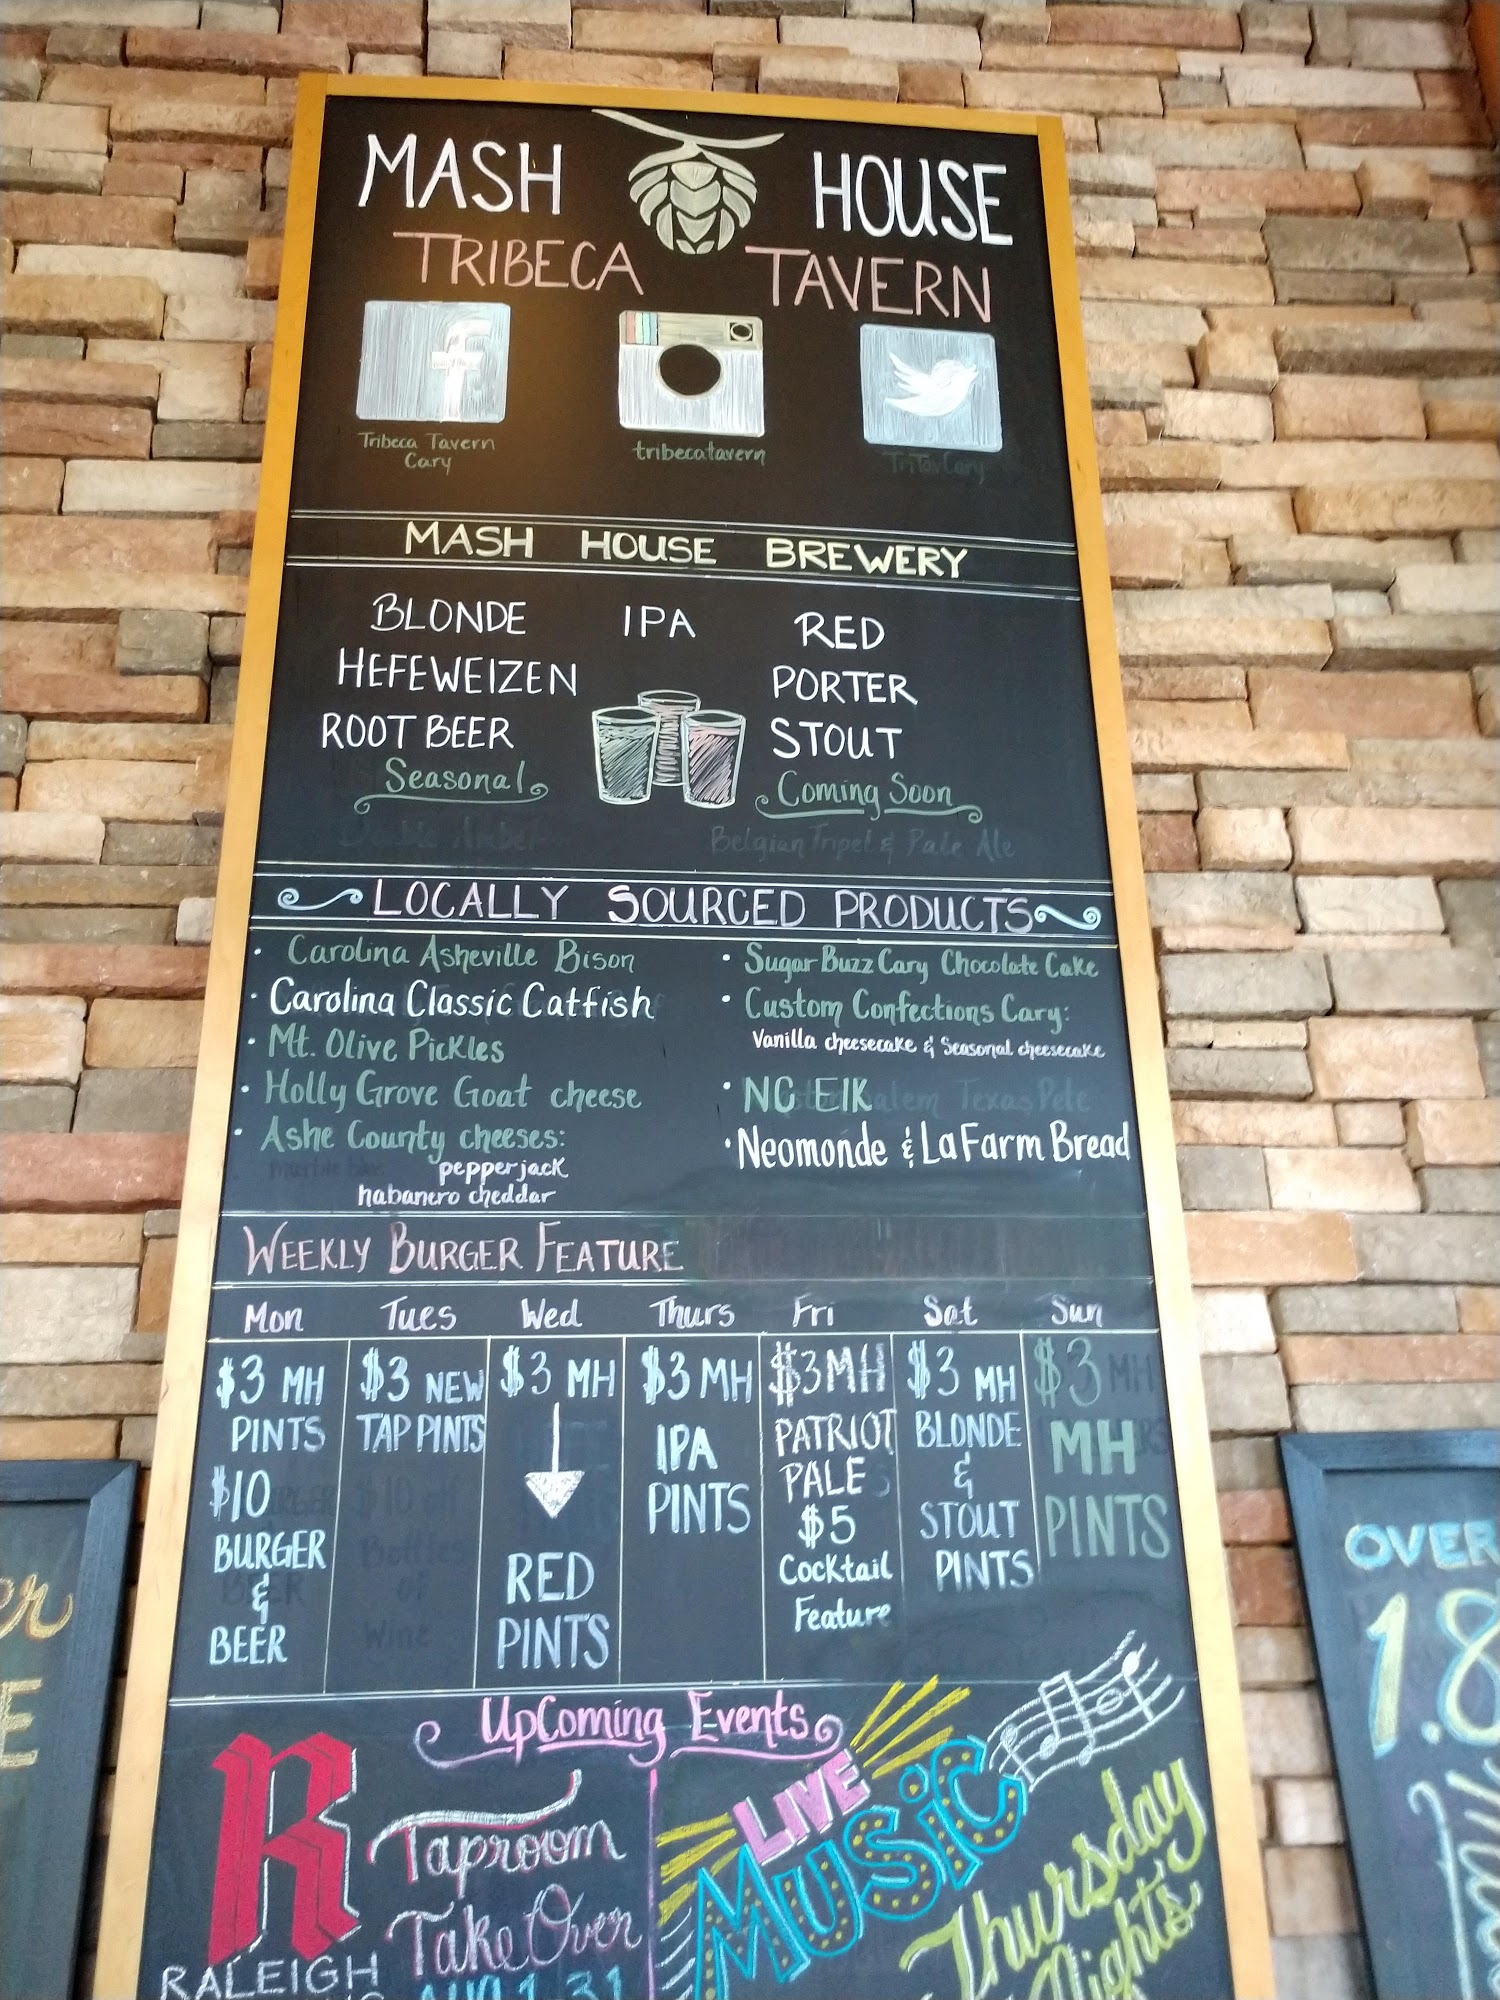 MASH HOUSE
TRIBECA TAVERN
Tribeca Tavern
Cary
tribecatavern
TriTavCary
MASH HOUSE BREWERY
BLONDE IPA RED
HEFEWEIZEN PORTER
ROOT BEER STOUT
Seasonal Coming Soon
Belgian Tripel & Pale Ale
LOCALLY SOURCED PRODUCTS
• Carolina Asheville Bison
• Carolina Classic Catfish
• Mt. Olive Pickles
• Holly Grove Goat cheese
• Ashe County cheeses:
pepperjack
habanero cheddar
• Sugar Buzz Cary Chocolate Cake
• Custom Confections Cary:
Vanilla cheesecake & Seasonal cheesecake
• NC Elk
• Neomonde & La Farm Bread
WEEKLY BURGER FEATURE
Mon Tues Wed Thurs Fri Sat Sun
$3 MH
PINTS
$10
BURGER
&
BEER
$3 NEW
TAP PINTS
$3 MH
RED
PINTS
$3 MH
IPA
PINTS
$3 MH
PATRIOT
PALE
$5
Cocktail
Feature
$3 MH
BLONDE
&
STOUT
PINTS
$3
MH
PINTS
UpComing Events
R
RALEIGH
Taproom
TakeOver
LIVE
MUSiC
Thursday
Nights
OVER
1.8